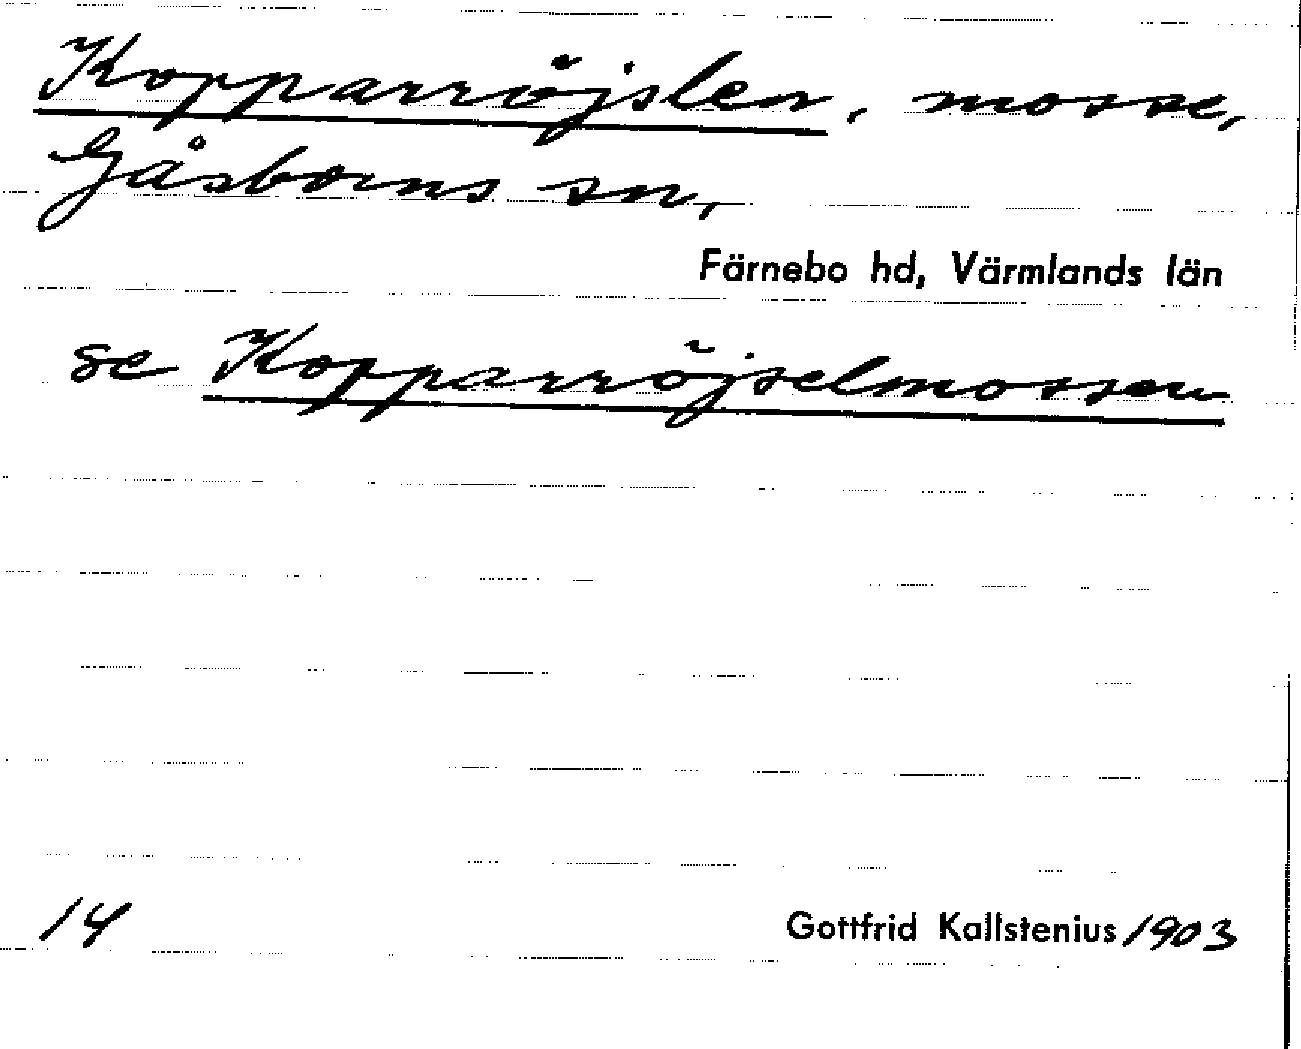 Kopparröjslen, mosse,
Gåsborns sn,
Färnebo hd, Värmlands län
se Kopparröjselmossen
14
Gottfrid Kallstenius 1903